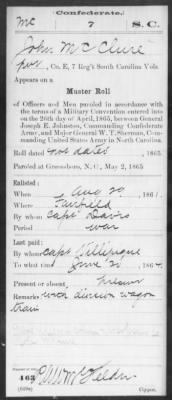 Confederate.
Mc 7 S.C.
John McClure
Pvt, Co. E, 7 Reg't South Carolina Vols.
Appears on a
Muster Roll
of Officers and Men paroled in accordance
with the terms of a Military Convention entered into
on the 26th day of April, 1865, between General
Joseph E. Johnston, Commanding Confederate
Army, and Major General W. T. Sherman, Com-
manding United States Army in North Carolina.
Roll dated not dated, 1865.
Paroled at Greensboro, N. C., May 2, 1865.
Enlisted:
When Aug 20, 1861.
Where Fairfield
By whom Capt Davis
Period war
Last paid:
By whom Capt
To what time June 30, 1864.
Present or absent Present
Remarks: with division wagon
train
Copyist.